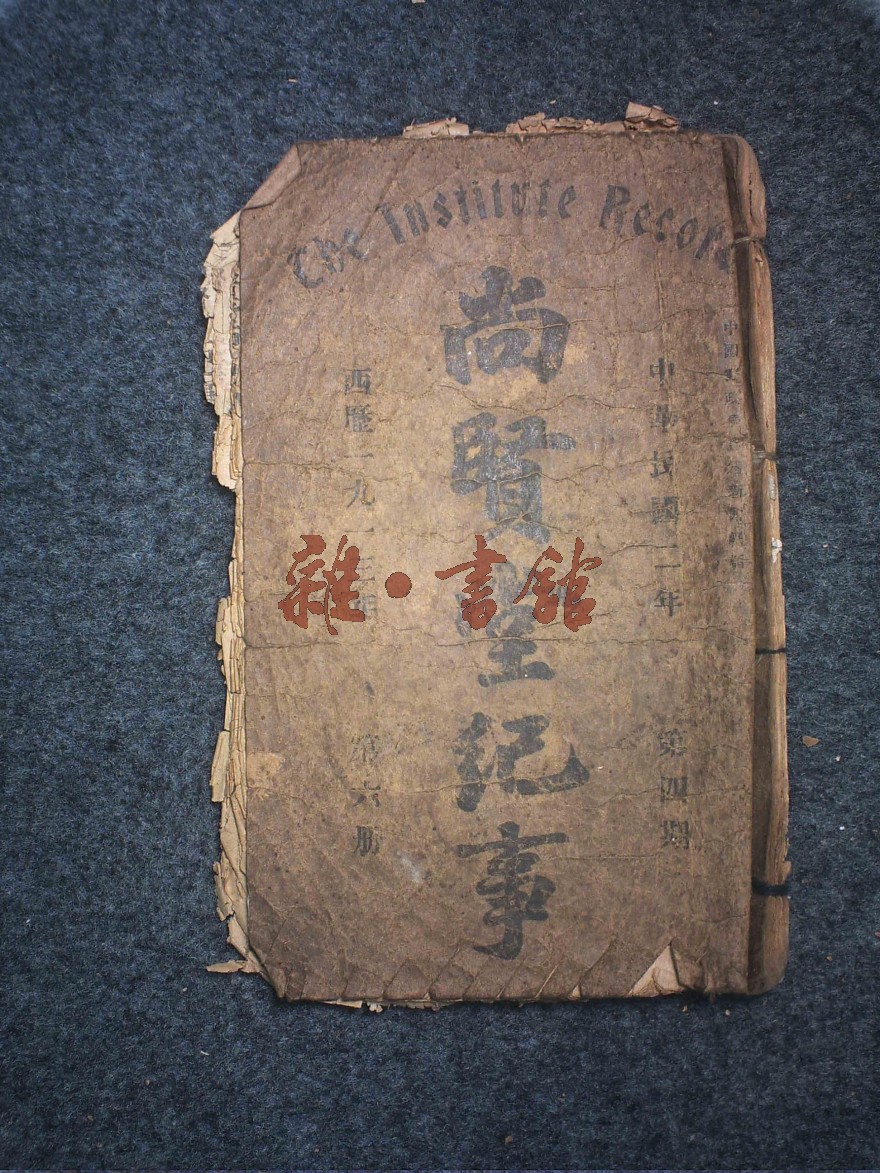 The Institute Record
中華民國二年 第四期
尚賢堂紀事
西歷一九一三年 第六册
雜·書館